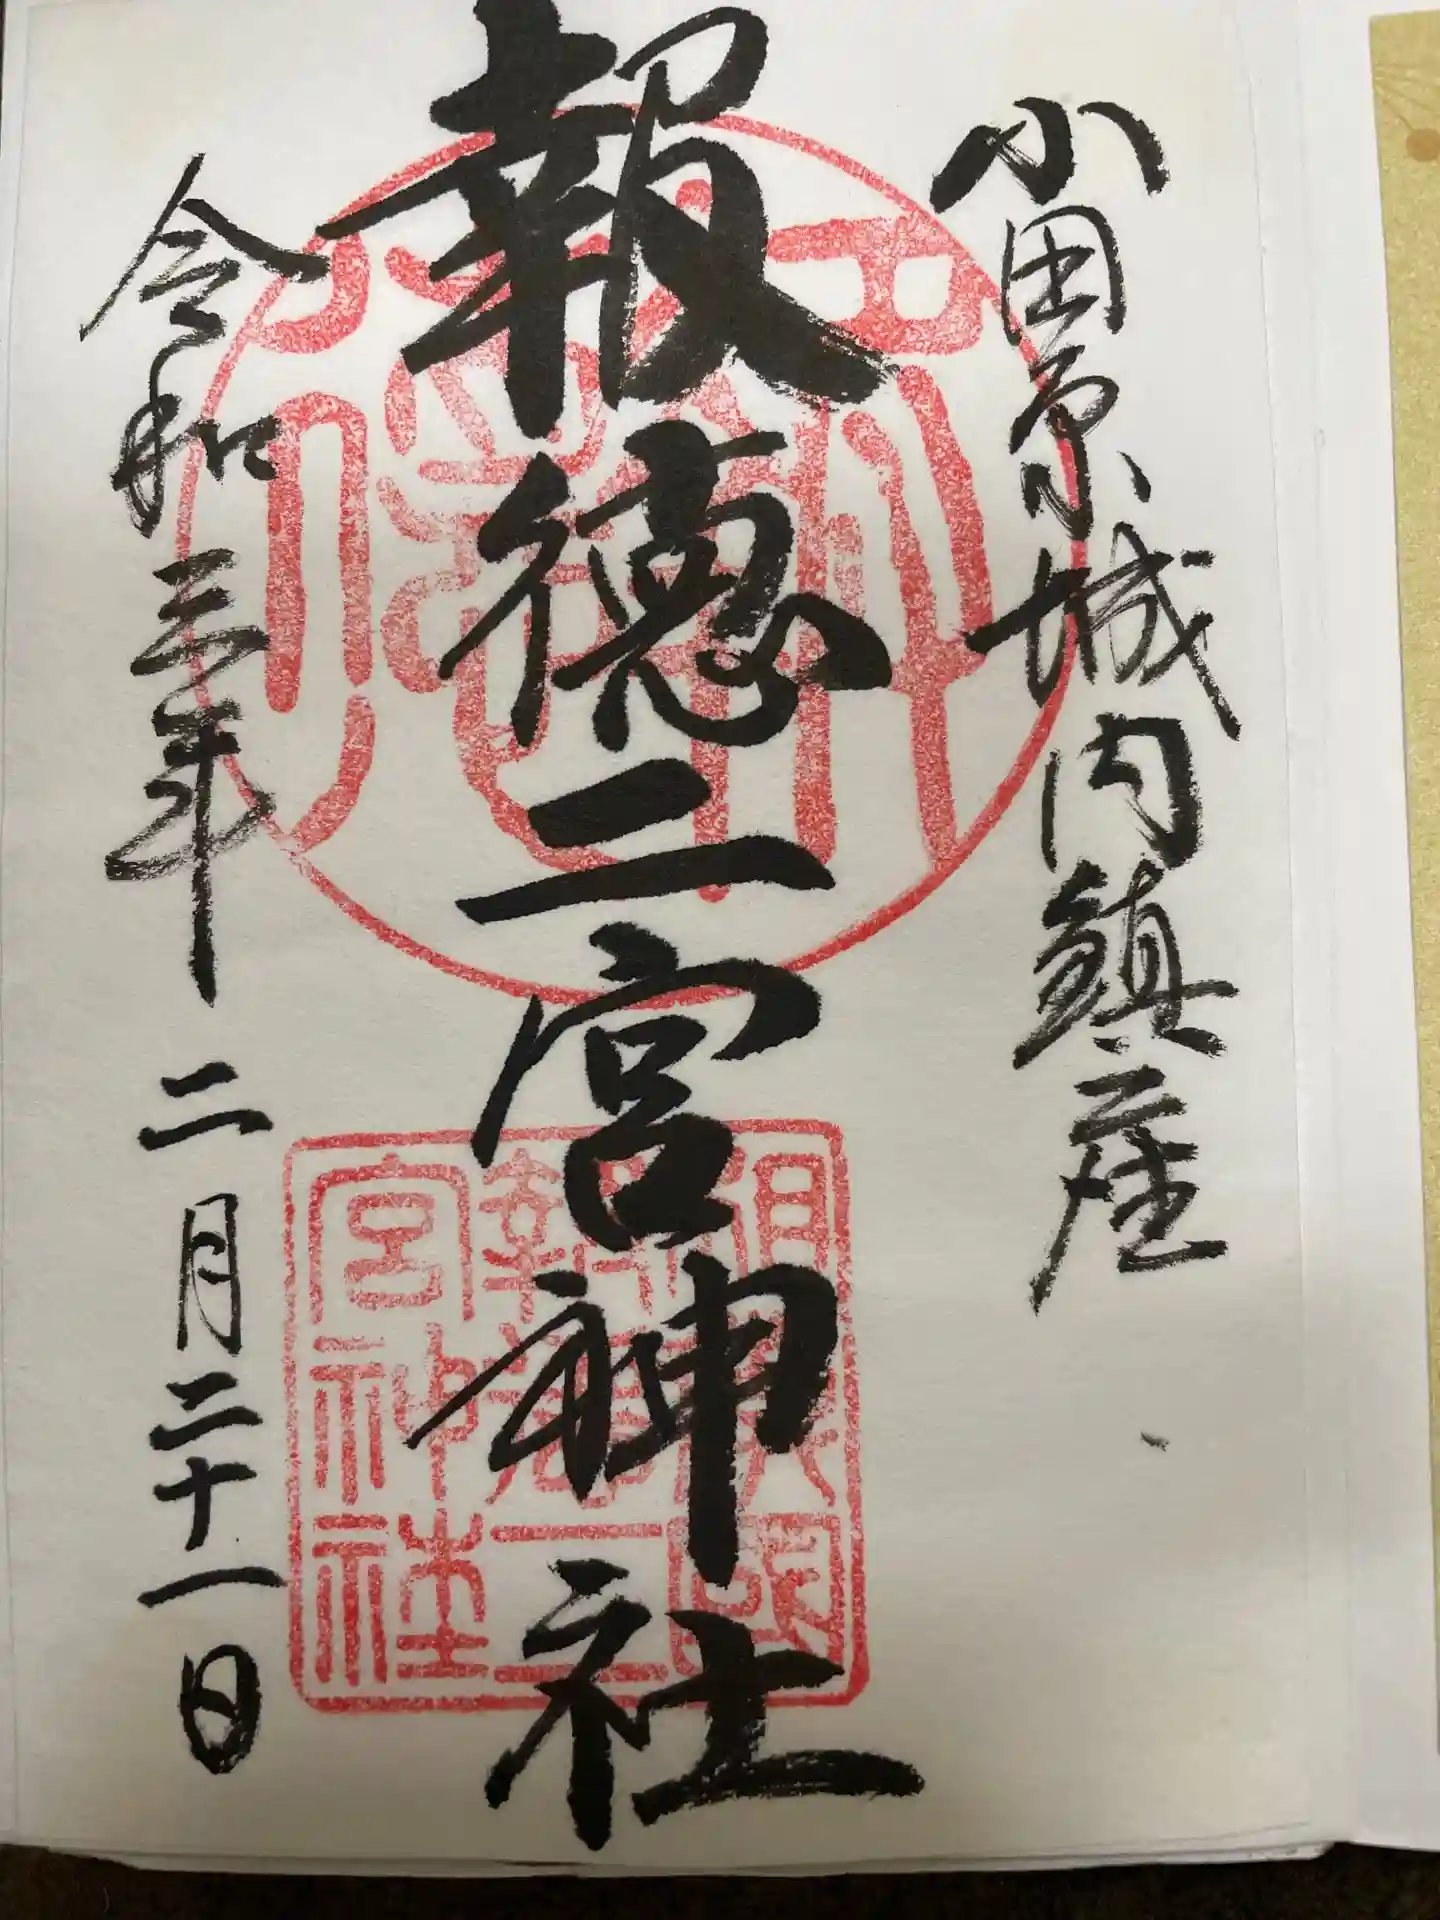 小田原城内鎮座
報徳二宮神社
令和三年 二月二十一日
相模國
報徳二
宮神社